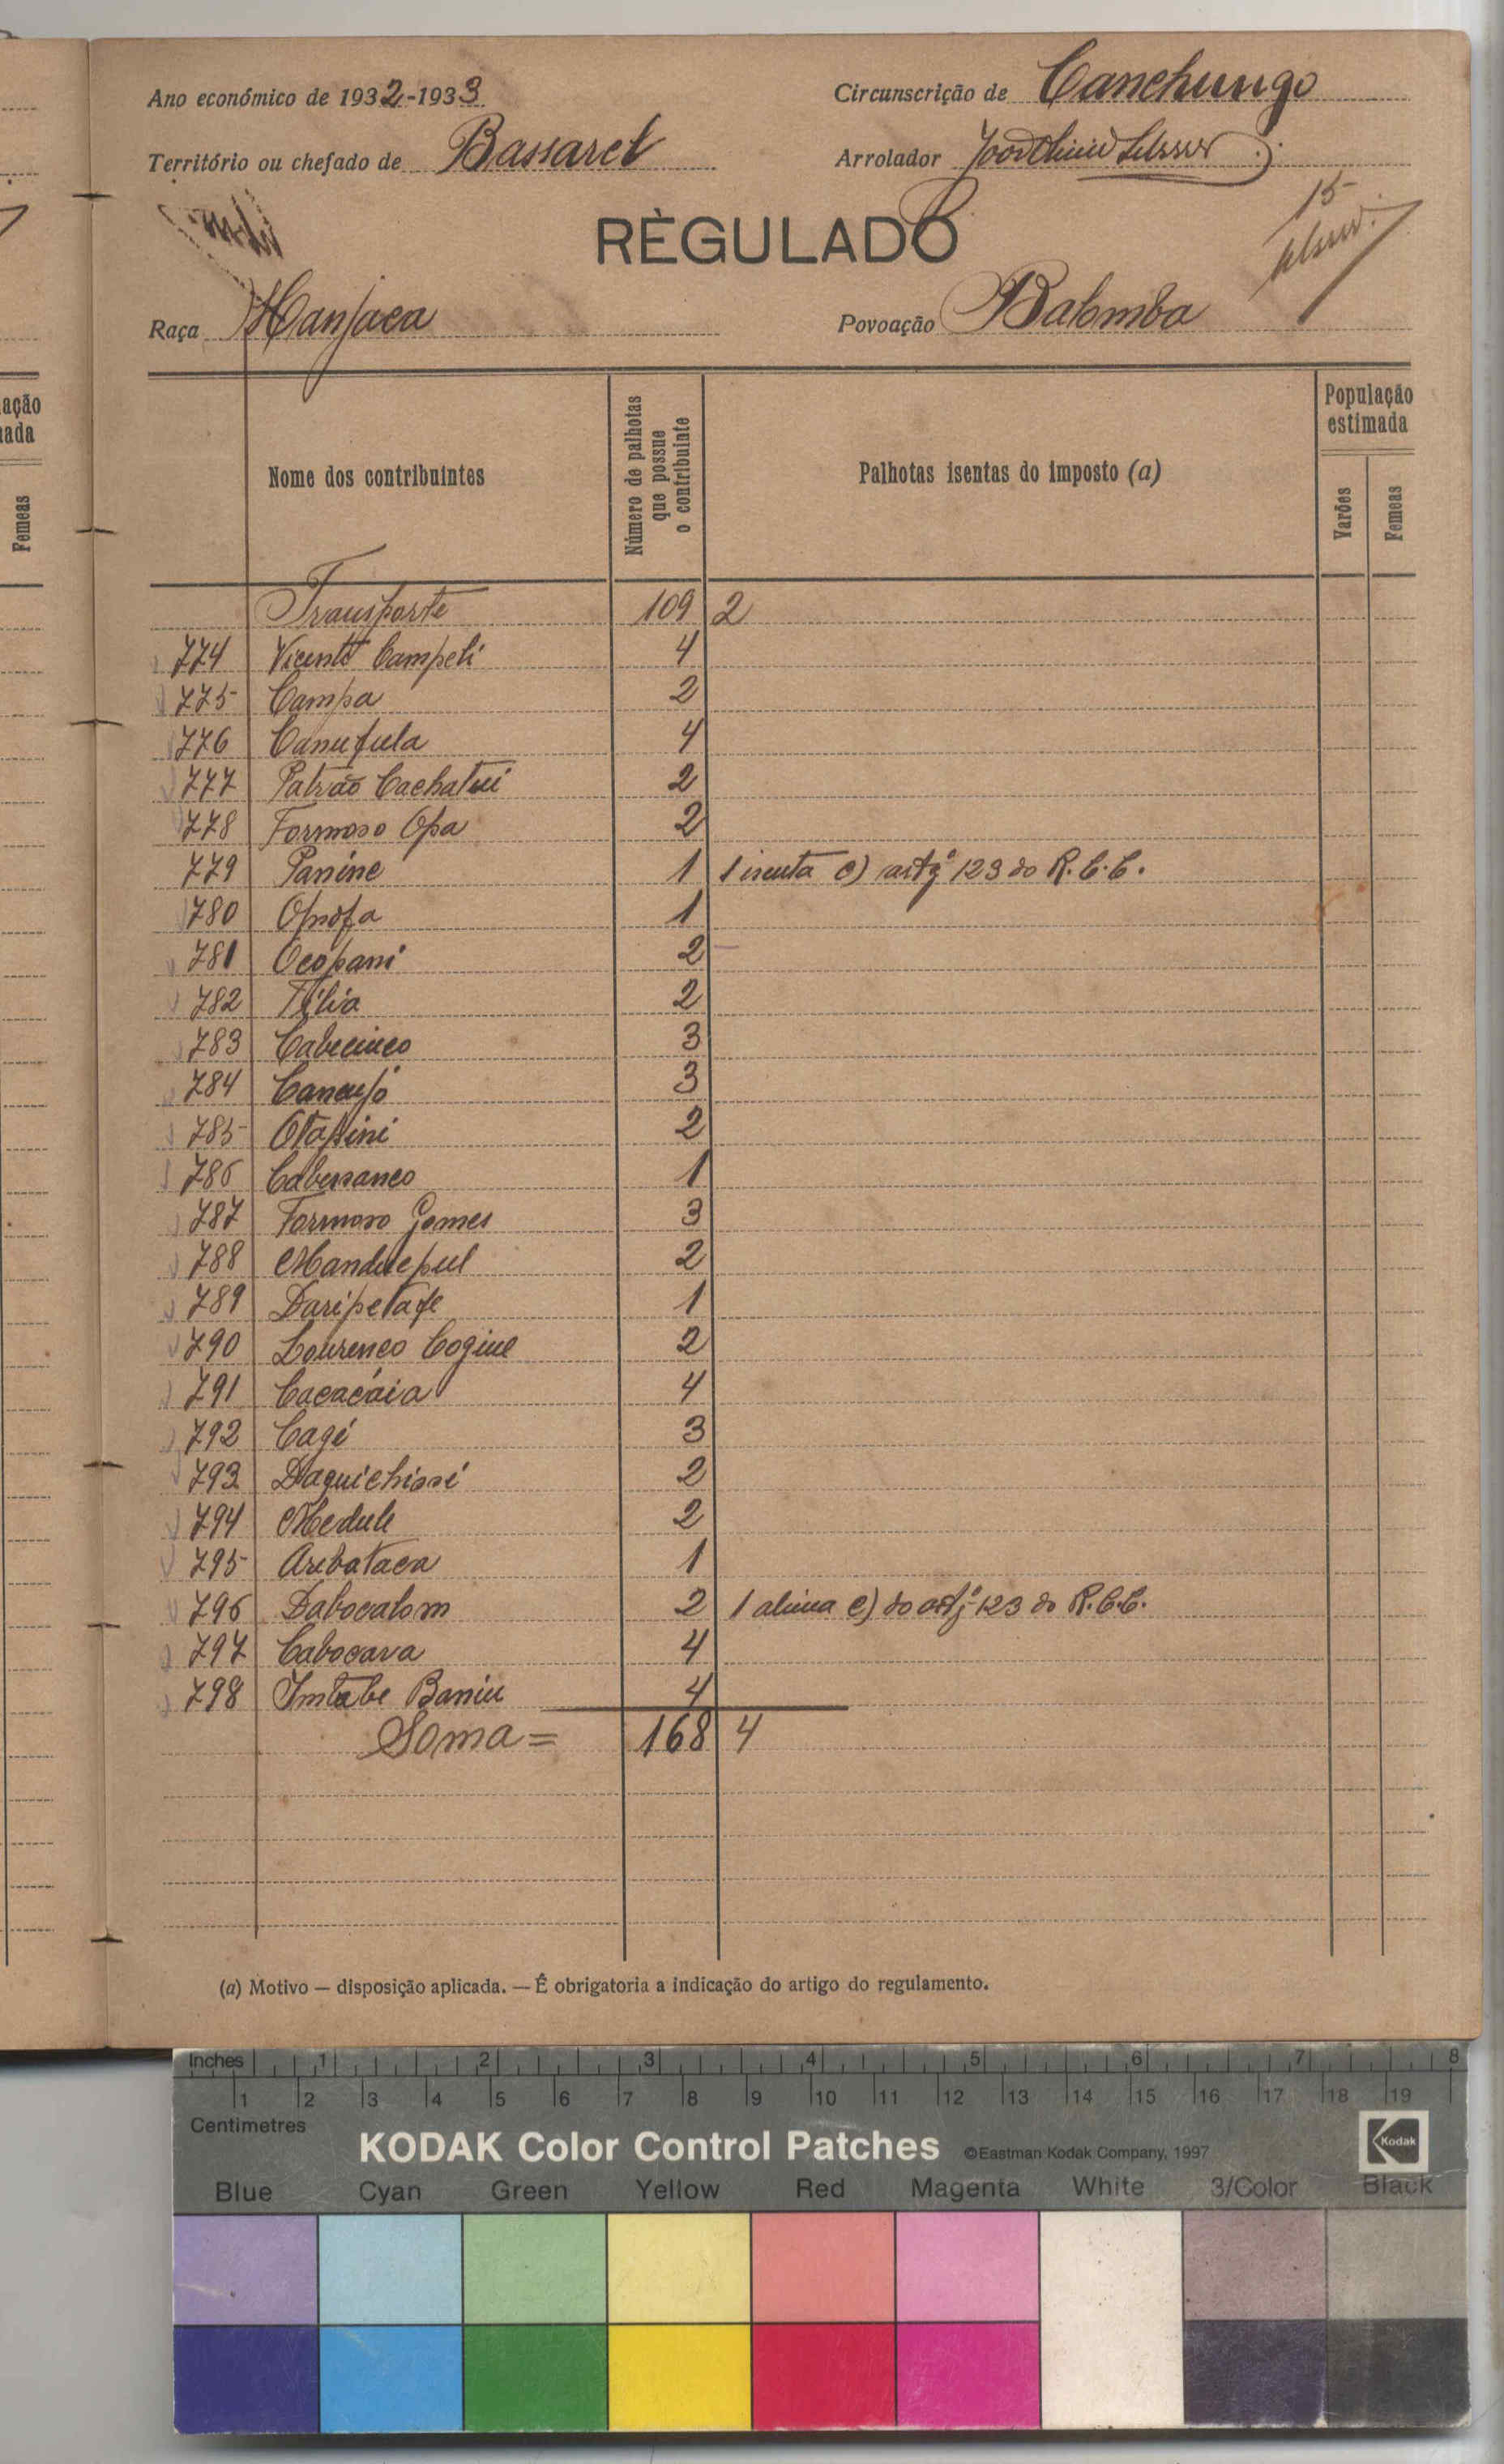 Ano económico de 1932-1933
Circunscrição de Canchungo
Território ou chefado de Bassarel
Arrolador
15
RÈGULADO
Raça Manjaca
Povoação Balomba
ação
ada
Femeas
Nome dos contribuintes
Número de palhotas que possue o contribuinte
Palhotas isentas do imposto (a)
População estimada
Varões
Femeas
Transporte 109 2
774 Vicente Campeli 4
775 Campa 2
776 Canufula 4
777 Patrão Cachatui 2
778 Formoso Opa 2
779 Panine 1 1 isenta e) artgº 123 do R.C.C.
780 Opnofa 1
781 Ocopani 2
782 Filia 2
783 Cabecinco 3
784 Cancujó 3
785 Otapini 2
786 Cabusanco 1
787 Formoso Gomes 3
788 Manduepul 2
789 Daripetafe 1
790 Lourenco Cogine 2
791 Cacacáia 4
792 Cagi 3
793 Daquichissi 2
794 Medule 2
795 Arebataca 1
796 Dabocalom 2 1 alinea e) do artgº 123 do R.C.C.
797 Cabocava 4
798 Imtabe Baniu 4
Soma = 168 4
(a) Motivo — disposição aplicada. — É obrigatoria a indicação do artigo do regulamento.
Inches 1 2 3 4 5 6 7 8
1 2 3 4 5 6 7 8 9 10 11 12 13 14 15 16 17 18 19
Centimetres
KODAK Color Control Patches ©Eastman Kodak Company, 1997 Kodak
Blue Cyan Green Yellow Red Magenta White 3/Color Black